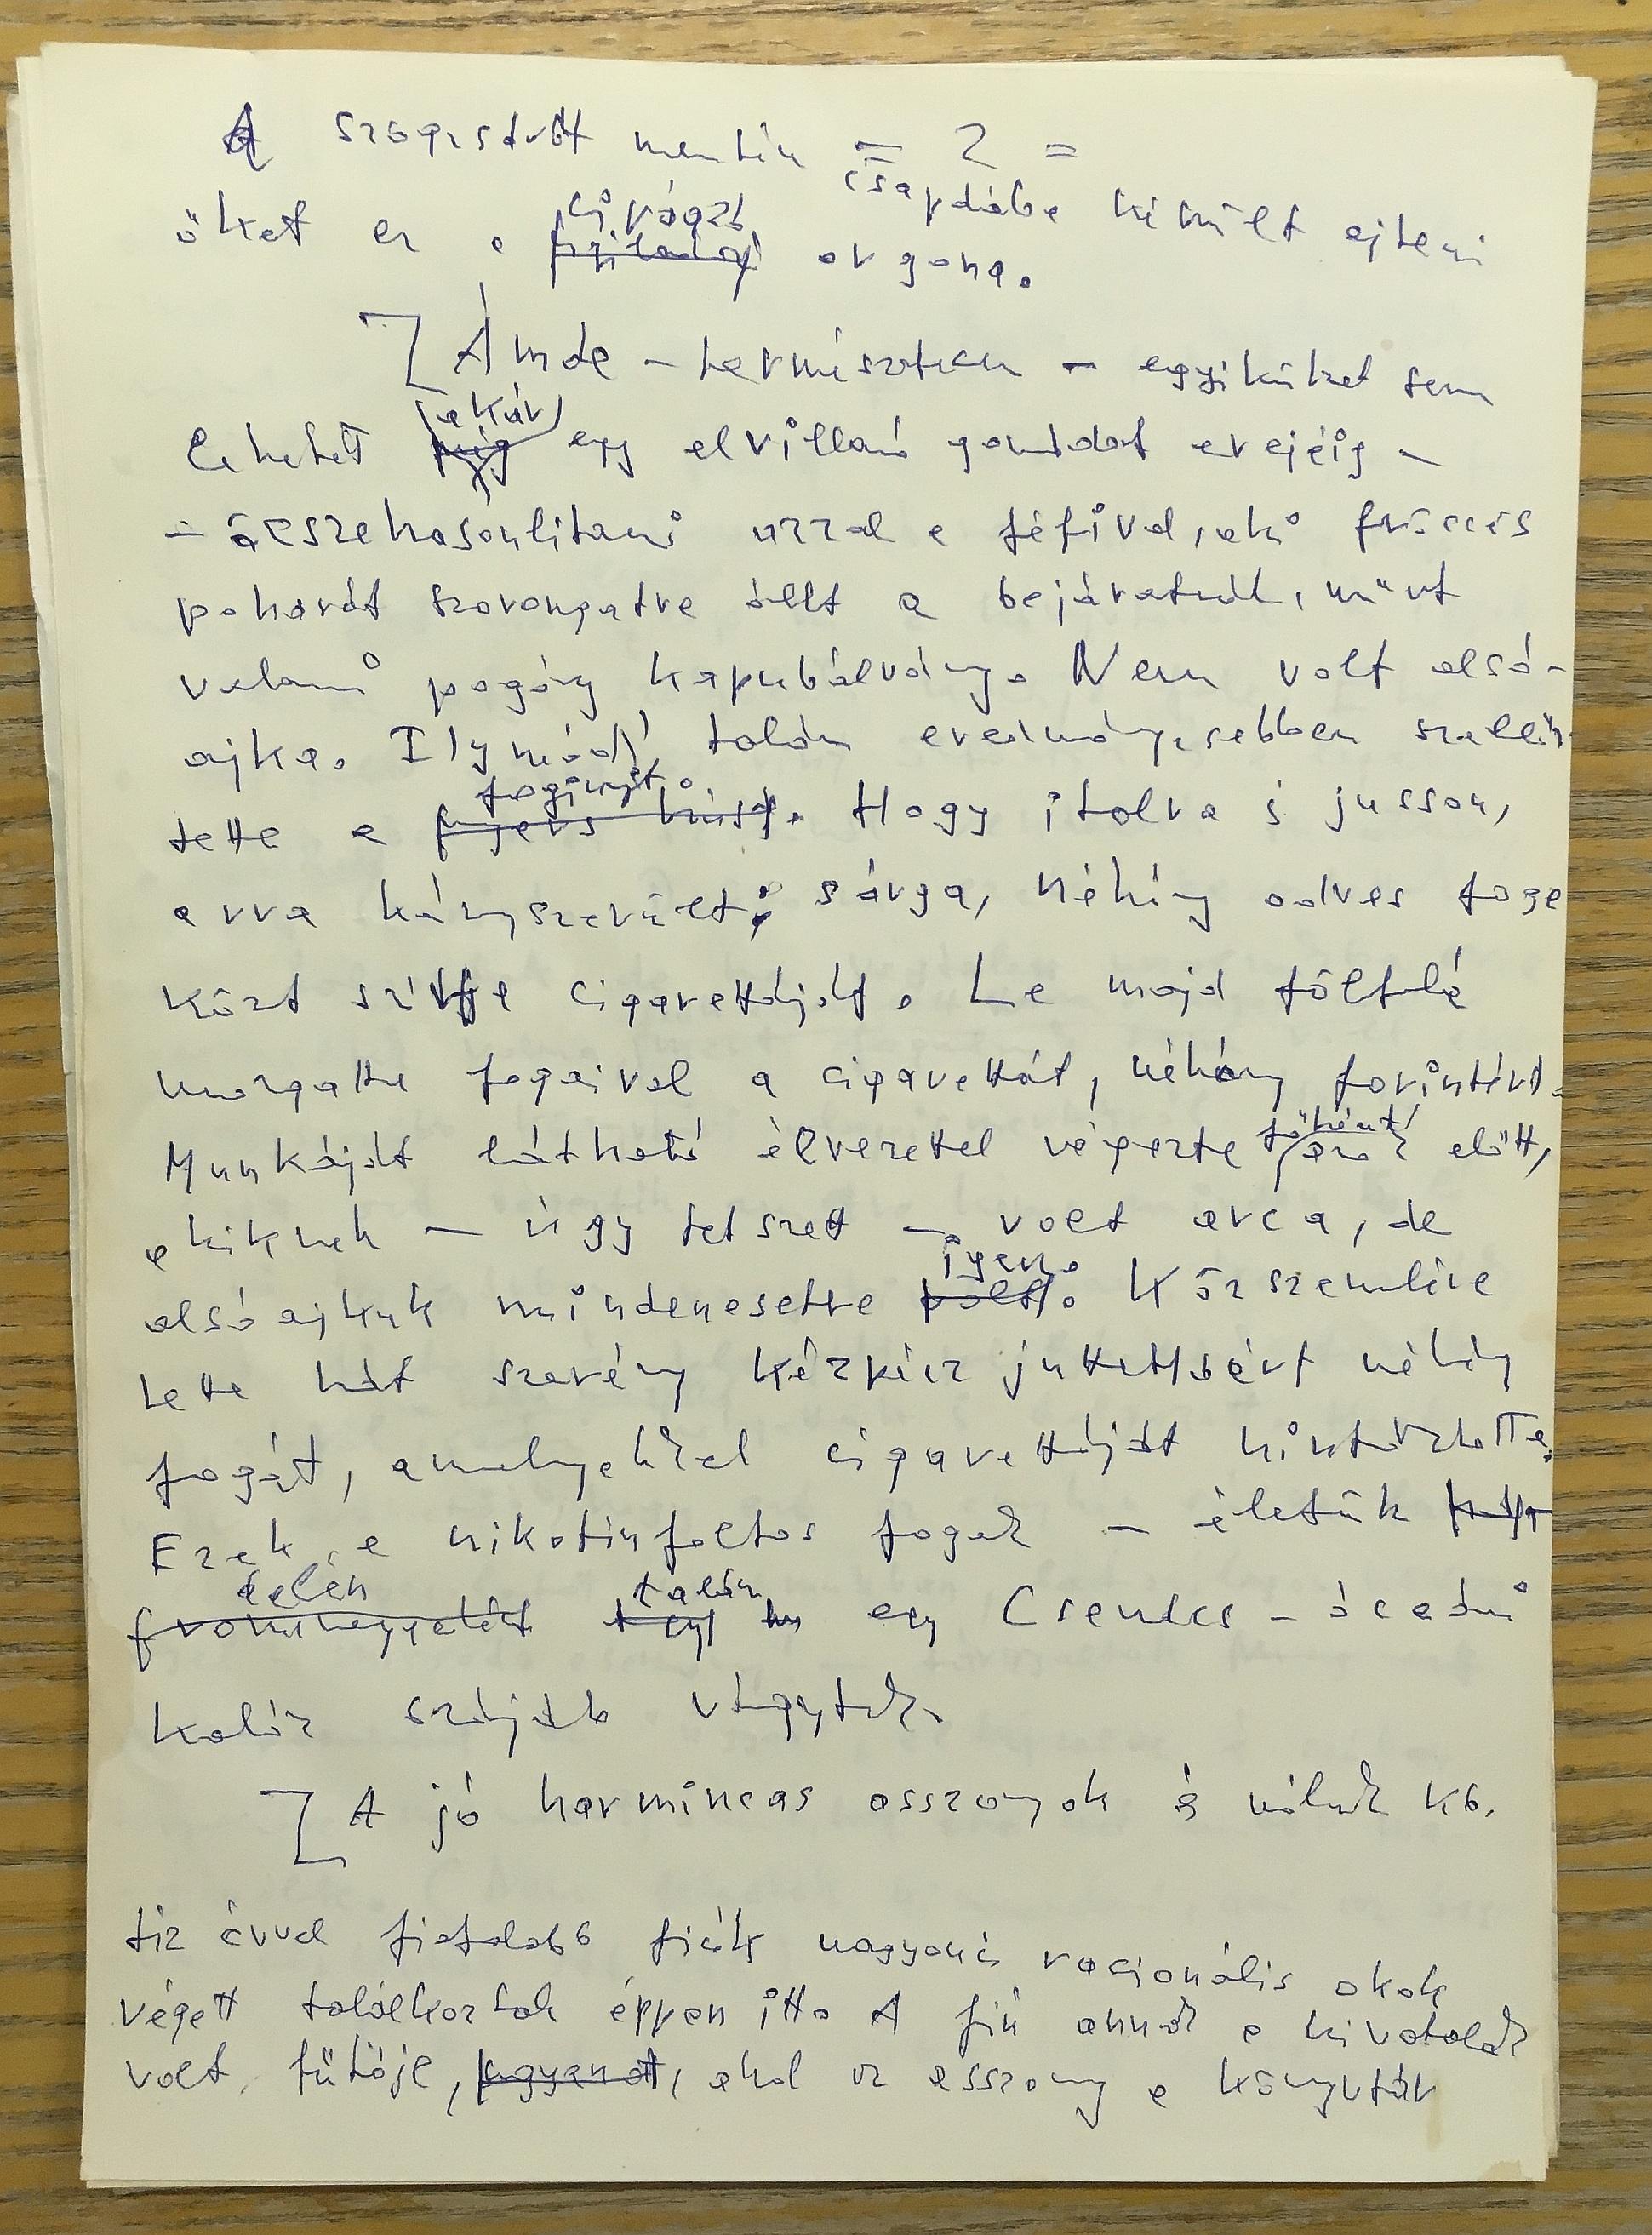 A szögesdrót mentén = 2 =
csapdába készült ejteni
őket ez a virágzó orgona.
Ámde – természetesen – egyiküket sem
lehetett (akár) egy elvillanó gondolat erejéig –
– összehasonlítani azzal a féfival, aki fröccsös
poharát szorongatva állt a bejáratnál, mint
valami pogány kapubálvány. Nem volt alsó-
ajka. Ily módon talán eredményesebben szellőz-
tette a fogínyét. Hogy italra is jusson,
arra kényszerült, sárga, néhány odvas foga
közt szívja cigarettáját. Le majd fölfelé
mozgatta fogaival a cigarettát, néhány forintért.
Munkáját látható élvezettel végezte azok előtt,
akiknek – úgy tetszett – volt arca, de
alsóajkuk mindenesetre igen. Közszemlére
tette hát szerény kézpénz juttatásért néhány
fogát, amelyekkel cigarettáját hintáztatta.
Ezek a nikotinfoltos fogak – életük
delén talán egy Csendes-óceáni
kalóz szájába vágytak.
A jó harmincas asszonyok és náluk kb.
tíz évvel fiatalabb fiúk nagyonis racionális okok
végett találkoztak éppen itt. A fiú annak a hivatalnak
volt fűtője, ugyanott, ahol az asszony a könyvtár